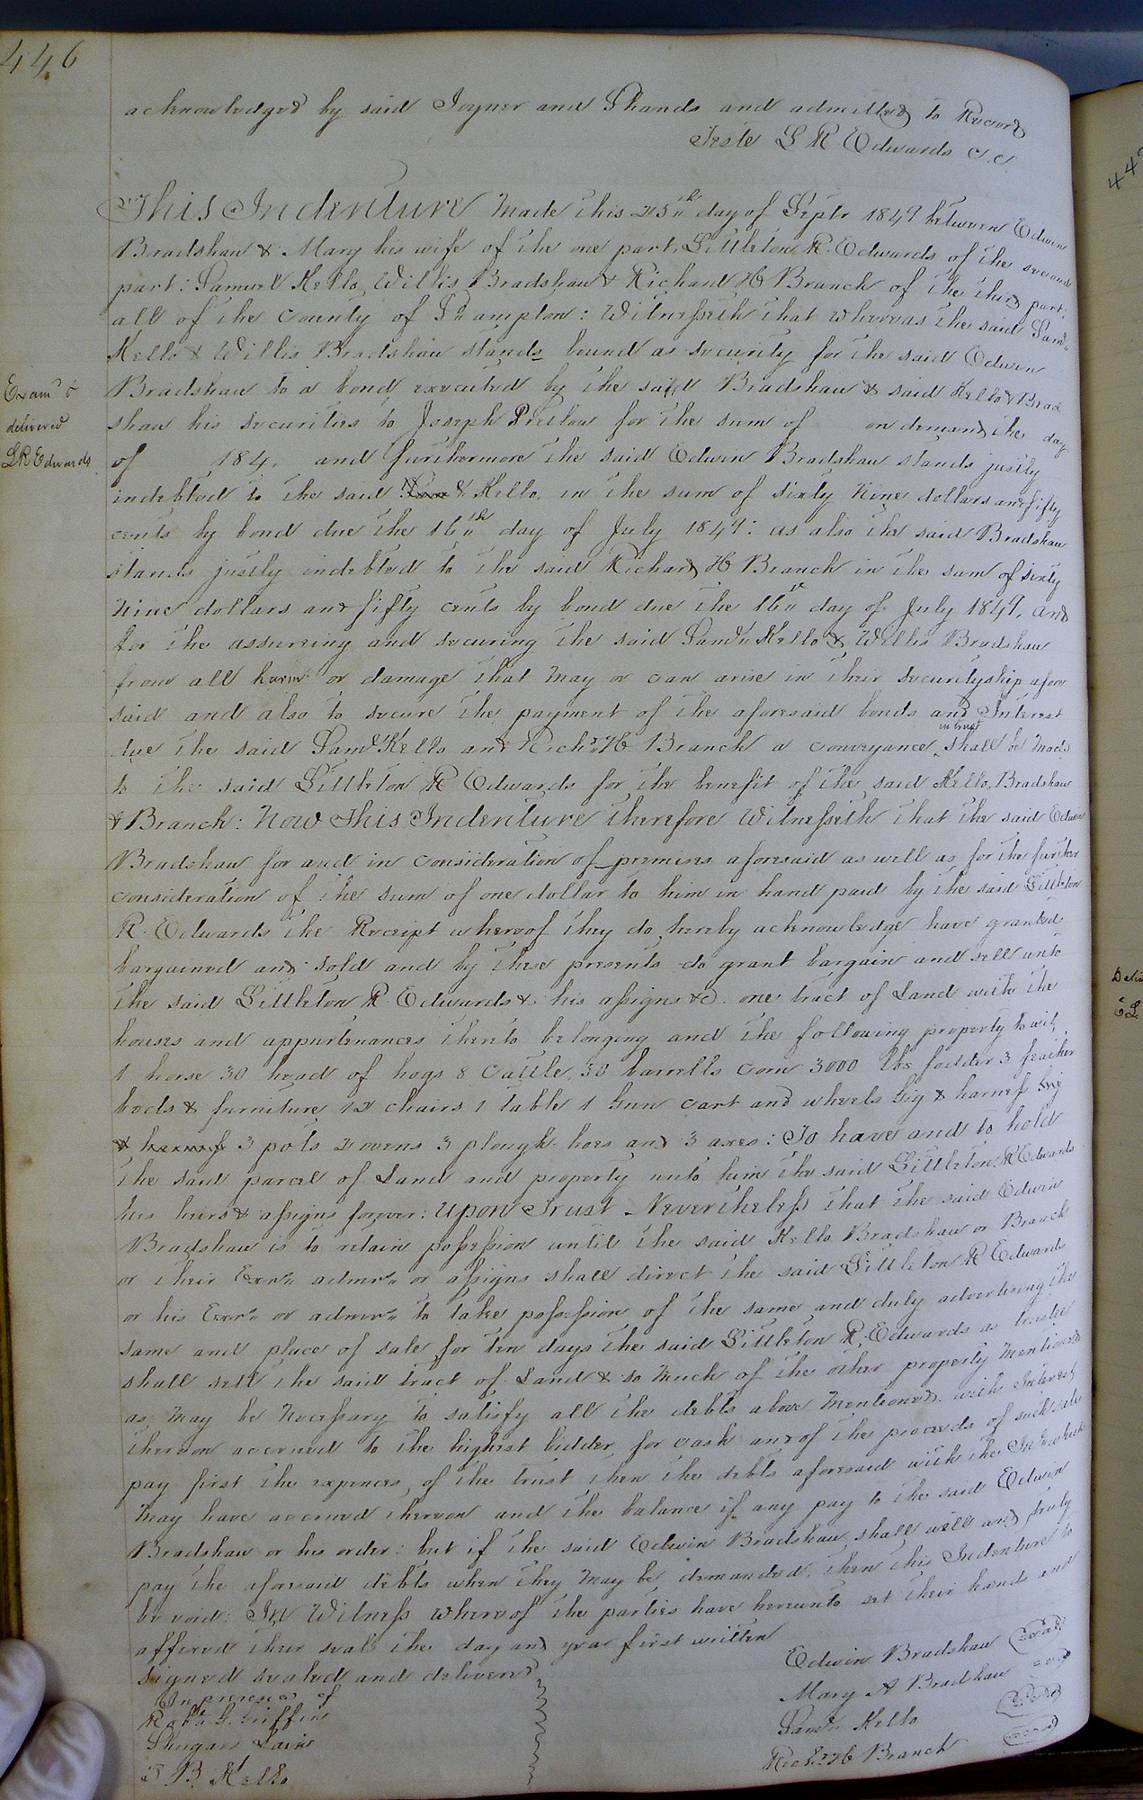 446
acknowledged by said Joyner and Shands and admitted to Record
Teste L R Edwards C.C
This Indenture Made this 25th day of Septr 1849 between Edwin
Bradshaw & Mary his wife of the one part, Littleton R. Edwards of the second
part: Samuel Kello, Willis Bradshaw & Richard H Branch of the third part.
all of the County of S:hampton: Witnesseth that whereas the said Saml
Kello & Willis Bradshaw stands bound as security for the said Edwin
Bradshaw to a bond executed by the said Bradshaw & said Kello & Brad
shaw his securities to Joseph Preston for the sum of on demand, the day
of 184. and furthermore the said Edwin Bradshaw stands justly
indebted to the said Kello, in the sum of sixty Nine dollars and fifty
cents by bond due the 16th day of July 1849: as also the said Bradshaw
stands justly indebted to the said Richard H Branch in the sum of sixty
Nine dollars and fifty cents by bond due the 16th day of July 1849, and
for the assureing and securing the said Saml Kello & Willis Bradshaw
from all harm or damage that may or can arise in their securityship afore
said and also to secure the payment of the aforesaid bonds and Interest
due the said Saml Kello and Richd H Branch a conveyance in trust shall be Made
to the said Littleton R Edwards for the benefit of the said Kello, Bradshaw
& Branch: Now This Indenture therefore Witnesseth that the said Edwin
Bradshaw for and in consideration of premises aforesaid as well as for the further
consideration of the sum of one dollar to him in hand paid by the said Littleton
R. Edwards the Receipt whereof they do hereby acknowledge have granted
bargained and sold and by these presents do grant bargain and sell unto
the said Littleton R Edwards & his assigns &c. one tract of Land with the
houses and appurtenances thereto belonging and the following property to wit,
1 horse 30 head of hogs 8 Cattle, 30 barrells corn 3000 lbs fodder 3 feather
beds & furniture, 12 chairs 1 table 1 Gun cart and wheels Gig & harness Gig
& harness 3 pots 2 ovens 3 plough hoes and 3 axes: To have and to hold
the said parcel of Land and property unto him the said Littleton R Edwards
his heirs & assigns forever: Upon Trust Nevertheless that the said Edwin
Bradshaw is to retain possession until the said Kello Bradshaw or Branch
or their Exrs admrs or assigns shall direct the said Littleton R Edwards
or his Exrs or admrs to take possession of the same and duly advertising the
same and place of sale for ten days the said Littleton R. Edwards as trustee
shall sell the said tract of Land & so much of the other property Mentioned
as may be Necessary to satisfy all the debts above Mentioned, with Interest
thereon accrued to the highest bidder, for cash and of the proceeds of such sale
pay first the expences, of the trust then the debts aforesaid with the Interest
May have accrued thereon and the balance if any pay to the said Edwin
Bradshaw or his order: but if the said Edwin Bradshaw shall well and truly
pay the aforesaid debts when they may be demanded, then this Indenture to
be void: In Witness whereof the parties have hereunto set their hands and
affixed their seals the day and year first written
Signed sealed and delivered
In presence of
Griffin
Shugars Lain
B. Kello
Edwin Bradshaw (seal)
Mary A Bradshaw seal
Saml Kello (seal)
Richd H Branch (seal)
Examd &
delivered
LR Edwards